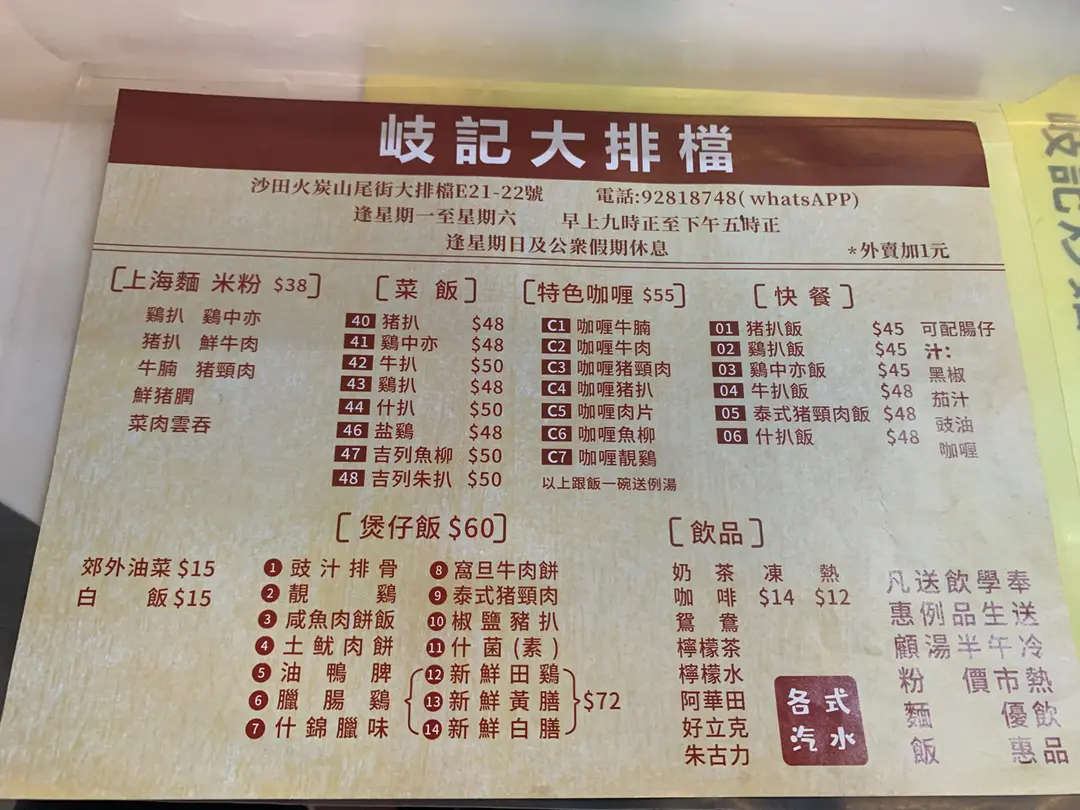 岐記大排檔
沙田火炭山尾街大排檔E21-22號 電話:92818748( whatsAPP)
逢星期一至星期六 早上九時正至下午五時正
逢星期日及公眾假期休息 *外賣加1元
[上海麵 米粉 $38]
鷄扒 鷄中亦
猪扒 鮮牛肉
牛腩 猪頸肉
鮮猪膶
菜肉雲吞
[菜 飯]
40 猪扒 $48
41 鷄中亦 $48
42 牛扒 $50
43 鷄扒 $48
44 什扒 $50
46 盐鷄 $48
47 吉列魚柳 $50
48 吉列朱扒 $50
[特色咖喱 $55]
C1 咖喱牛腩
C2 咖喱牛肉
C3 咖喱猪頸肉
C4 咖喱猪扒
C5 咖喱肉片
C6 咖喱魚柳
C7 咖喱靚鷄
以上跟飯一碗送例湯
[快餐]
01 猪扒飯 $45
02 鷄扒飯 $45
03 鷄中亦飯 $45
04 牛扒飯 $48
05 泰式猪頸肉飯 $48
06 什扒飯 $48
可配腸仔
汁:
黑椒
茄汁
豉油
咖喱
郊外油菜 $15
白 飯 $15
[煲仔飯 $60]
1 豉汁排骨
2 靚 鷄
3 咸魚肉餅飯
4 土鱿肉餅
5 油鴨脾
6 臘腸鷄
7 什錦臘味
8 窩旦牛肉餅
9 泰式猪頸肉
10 椒鹽豬扒
11 什菌(素)
12 新鮮田鷄
13 新鮮黃膳
14 新鮮白膳
$72
[飲品]
奶 茶 凍 熱
咖 啡 $14 $12
鴛 鴦
檸檬茶
檸檬水
阿華田
好立克
朱古力
各式
汽水
奉送冷熱飲品
學生午市優惠
飲品半價
送例湯
凡惠顧粉麵飯
岐記大